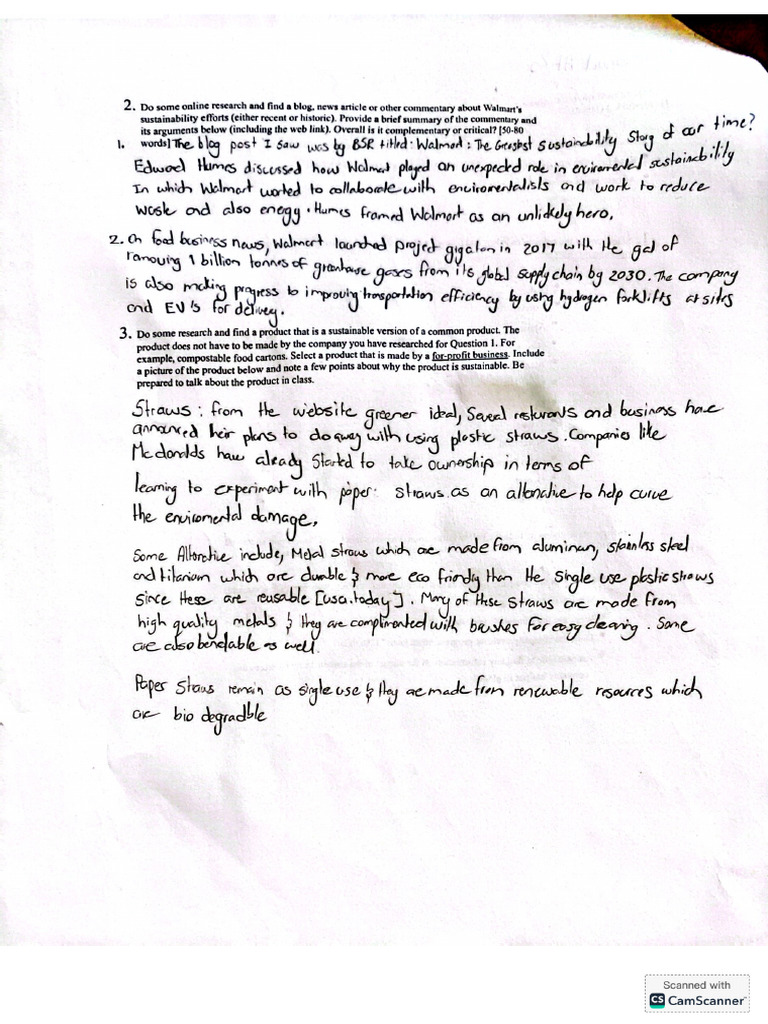 2. Do some online research and find a blog, news article or other commentary about Walmart's
sustainability efforts (either recent or historic). Provide a brief summary of the commentary and
its arguments below (including the web link). Overall is it complementary or critical? [50-80
1. words] The blog post I saw was by BSR titled: Walmart: The Greatest Sustainability Story of our time?
Edward Humes discussed how Walmart played an unexpected role in enviromental sustainability
In which Walmart worked to collaborate with enviromentalists and work to reduce
waste and also energy. Humes framed Walmart as an unlikely hero.
2. On food business news, Walmart launched project gigaton in 2017 with the goal of
removing 1 billion tonnes of greenhouse gases from its global supply chain by 2030. The company
is also making progress to improving transportation efficiency by using hydrogen forklifts at sites
and EV's for delivery.
3. Do some research and find a product that is a sustainable version of a common product. The
product does not have to be made by the company you have researched for Question 1. For
example, compostable food cartons. Select a product that is made by a for-profit business. Include
a picture of the product below and note a few points about why the product is sustainable. Be
prepared to talk about the product in class.
Straws: from the website greener ideal, Several resturants and business have
announced their plans to do away with using plastic straws. Companies like
Mcdonalds have already started to take ownership in terms of
learning to experiment with paper straws as an alternative to help curve
the enviromental damage.
Some Alternative include, Metal straws which are made from aluminum, stainless steel
and titanium which are durable & more eco friendly than the single use plastic straws
since these are reusable [usa.today]. Many of these straws are made from
high quality metals & they are complimented with brushes for easy cleaning. Some
are also bendable as well.
Paper Straws remain as single use & they are made from renewable resources which
are bio degradble
Scanned with
CS CamScanner